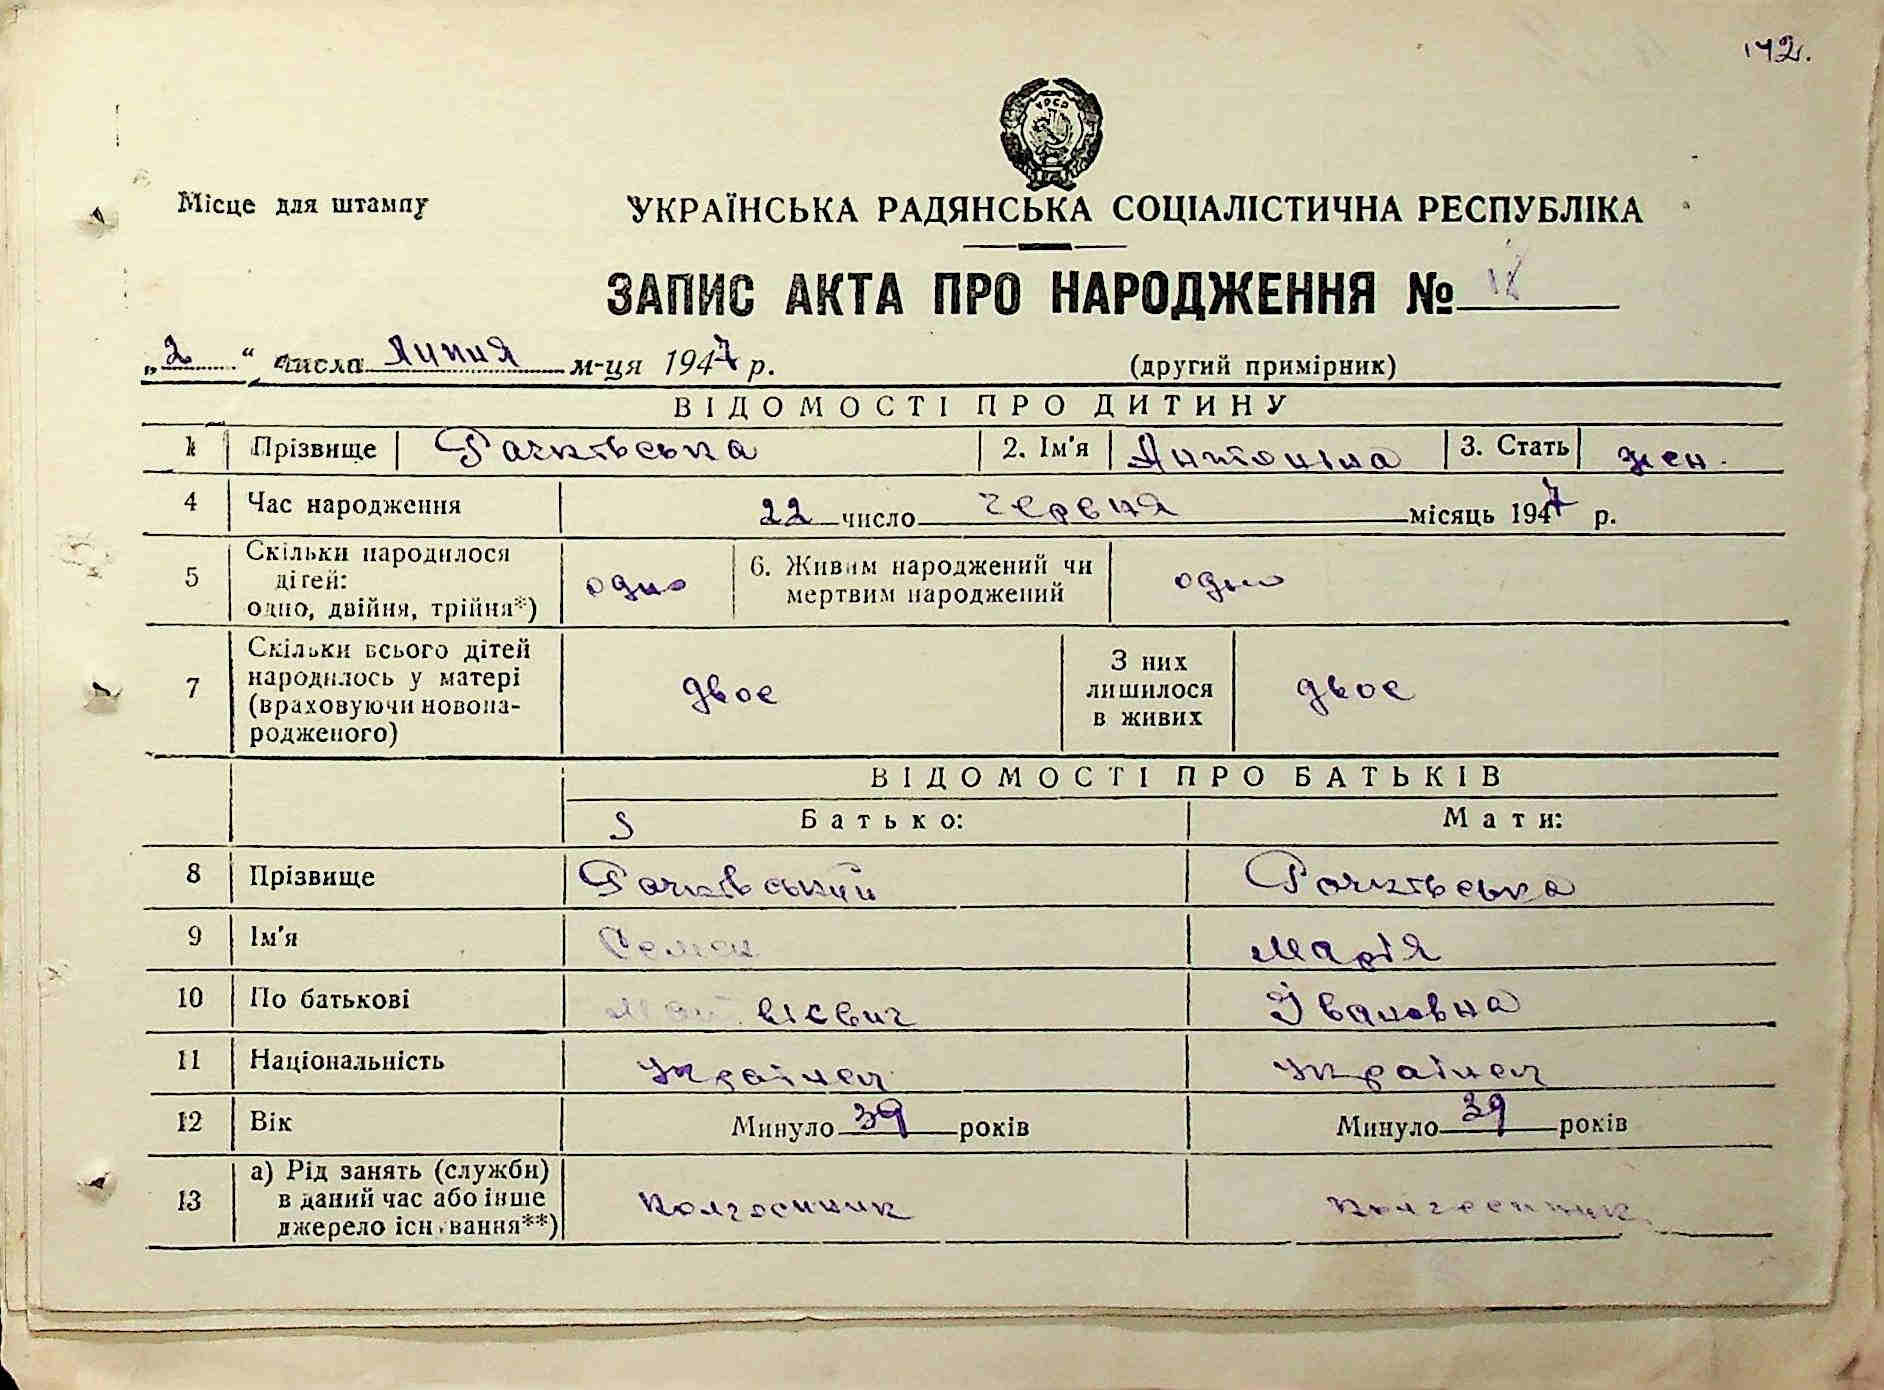 142.
УРСР
Місце для штампу
УКРАЇНСЬКА РАДЯНСЬКА СОЦІАЛІСТИЧНА РЕСПУБЛІКА
ЗАПИС АКТА ПРО НАРОДЖЕННЯ № 18
„2“ числа Липня м-ця 1947 р. (другий примірник)
ВІДОМОСТІ ПРО ДИТИНУ
1 Прізвище Рачківська 2. Ім'я Антоніна 3. Стать жен.
4 Час народження 22 число червня місяць 1947 р.
5 Скільки народилося
дітей:
одно, двійня, трійня*) одно 6. Живим народжений чи
мертвим народжений одно
7 Скільки всього дітей
народилось у матері
(враховуючи новона-
родженого) двоє З них
лишилося
в живих двоє
ВІДОМОСТІ ПРО БАТЬКІВ
Батько: Мати:
8 Прізвище Рачківський Рачківська
9 Ім'я Семен Марія
10 По батькові Івановна
11 Національність Українец Українец
12 Вік Минуло 39 років Минуло 39 років
13 а) Рід занять (служби)
в даний час або інше
джерело існування**) Колгоспник Колгоспник